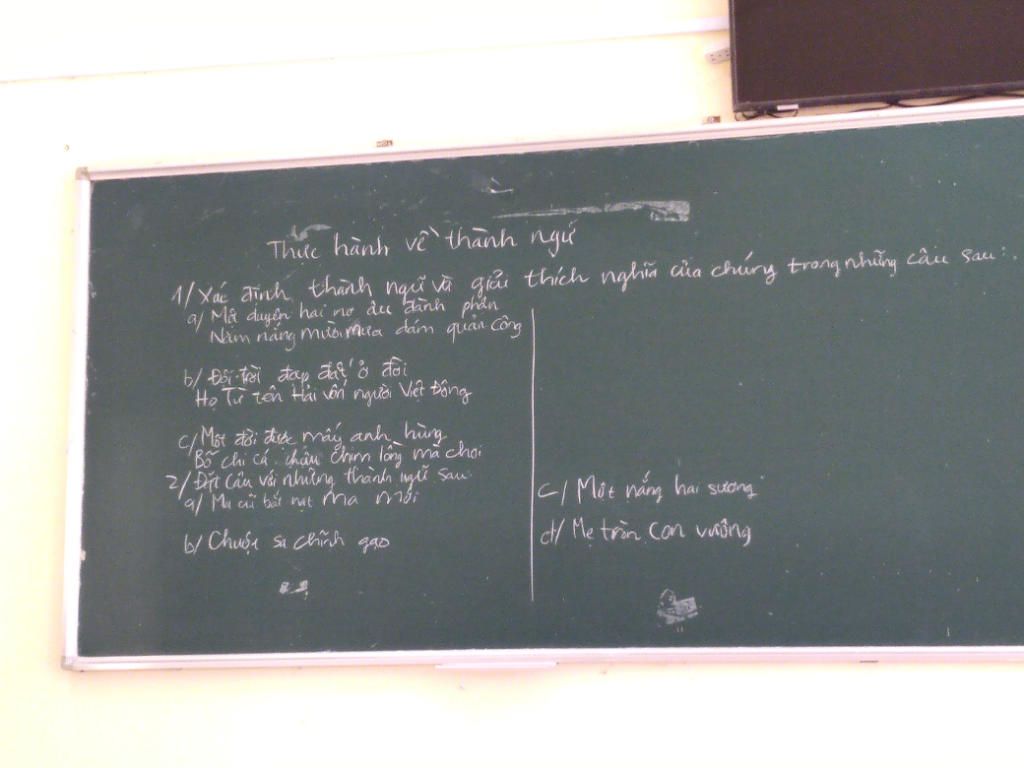 Thực hành về thành ngữ
1/ Xác định thành ngữ và giải thích nghĩa của chúng trong những câu sau:
a/ Một duyên hai nợ âu đành phận
Năm nắng mười mưa dám quản công
b/ Đội trời đạp đất ở đời
Họ Từ tên Hải vốn người Việt Đông
c/ Một đời được mấy anh hùng
Bõ chi cá chậu chim lồng mà chơi
2/ Đặt câu với những thành ngữ sau
a/ Ma cũ bắt nạt ma mới
b/ Chuột sa chĩnh gạo
c/ Một nắng hai sương
d/ Mẹ tròn con vuông